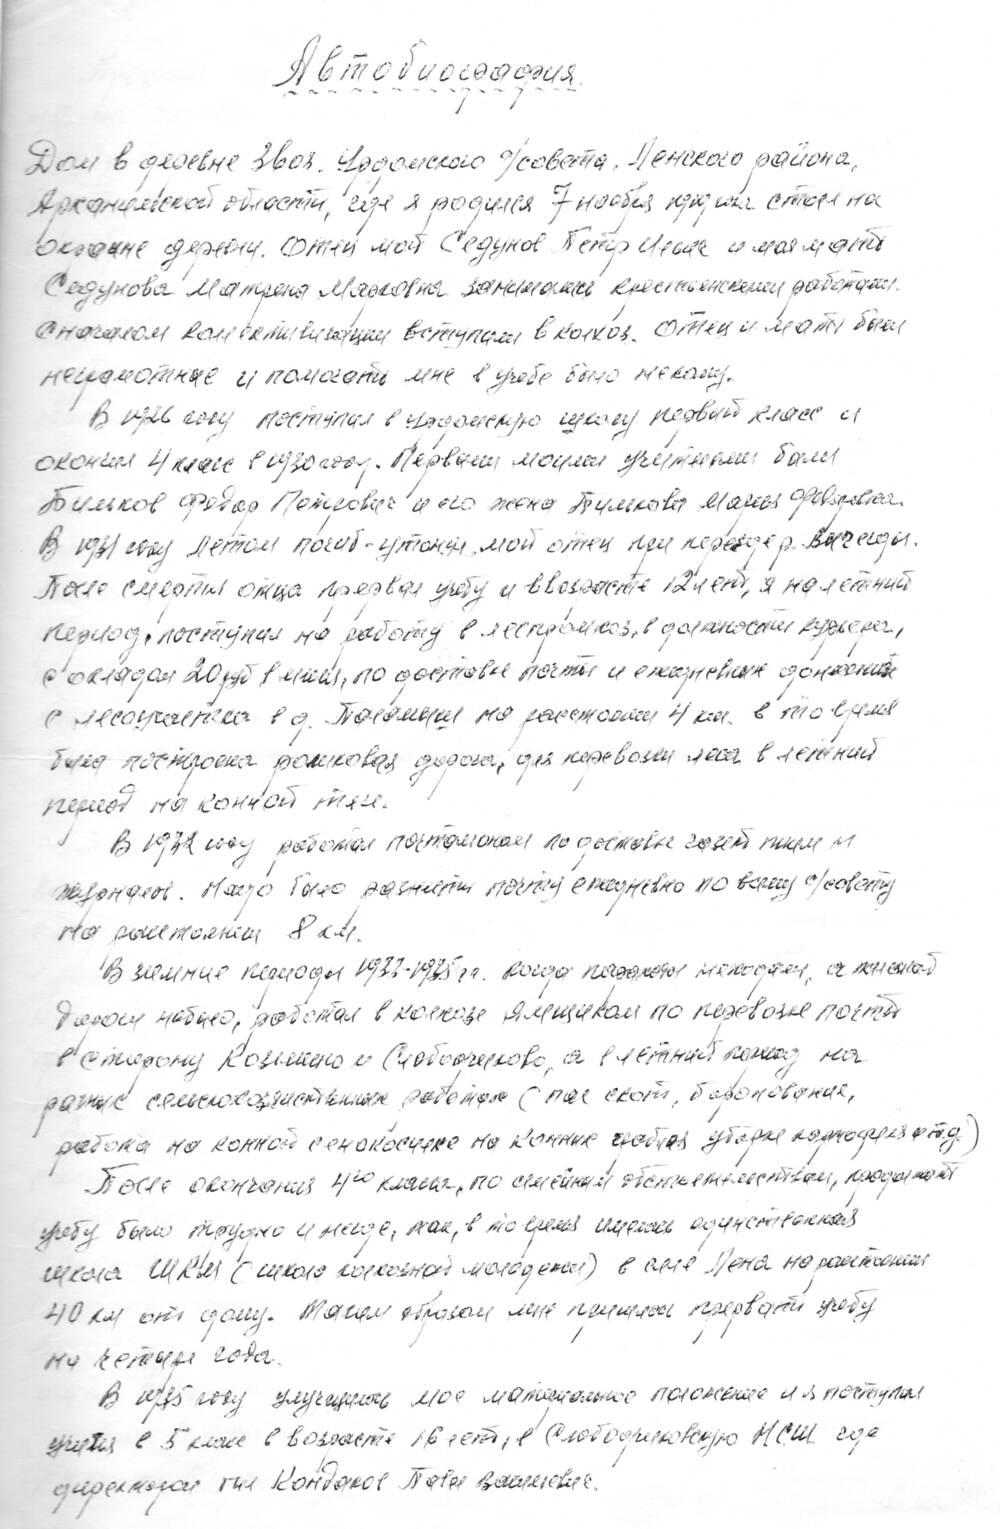 Автобиография.
Дом в деревне Звоз. Урдомского с/совета, Ленского района,
Архангельской области, где я родился 7 ноября стоял на
окраине деревни. Отец мой Седунов Петр Ильич и моя мать
Седунова Матрена Марковна занимались крестьянскими работами.
С началом коллективизации вступили в колхоз. Отец и мать были
неграмотные и помогать мне в учебе было некому.
В 1926 году поступил в Урдомскую школу первый класс и
окончил 4 класс в 1930 году. Первыми моими учителями были
Федор Петрович и его жена Мария
В 1931 году летом погиб-утонул мой отец при переезде р. Вычегды.
После смерти отца прервал учебу и в возрасте 12 лет, я на летний
период, поступил на работу в леспромхоз, в должности курьера,
с окладом 20 руб в месяц, по доставке почты и ежедневных донесений
с лесоучастка в д. на расстоянии 4 км. в то время
была построена рельсовая дорога, для перевозки леса в летний
период на конной тяге.
В 1932 году работал почтальоном по доставке газет писем и
журналов. Надо было разнести почту ежедневно по всему с/совету
на расстоянии 8 км.
В зимние периоды 1933-1935 гг. когда пароходы не ходят, а железной
дороги не было, работал в колхозе ямщиком по перевозке почты
в сторону Козьмино и Слободчиково, а в летний период на
разных сельскохозяйственных работах (пас скот, боронование,
работа на конной сенокосилке на конных граблях уборке картофеля и т.д.)
После окончания 4го класса, по семейным обстоятельствам, продолжать
учебу было трудно и негде, так, в то время имелась единственная
школа ШКМ (школа колхозной молодежи) в селе Лена на расстоянии
40 км от дому. Таким образом мне пришлось прервать учебу
на четыре года.
В 1935 году улучшилось мое материальное положение и я поступил
учиться в 5 класс в возрасте 16 лет, в Слободчиковскую НСШ где
директором был Кондаков Павел Васильевич.